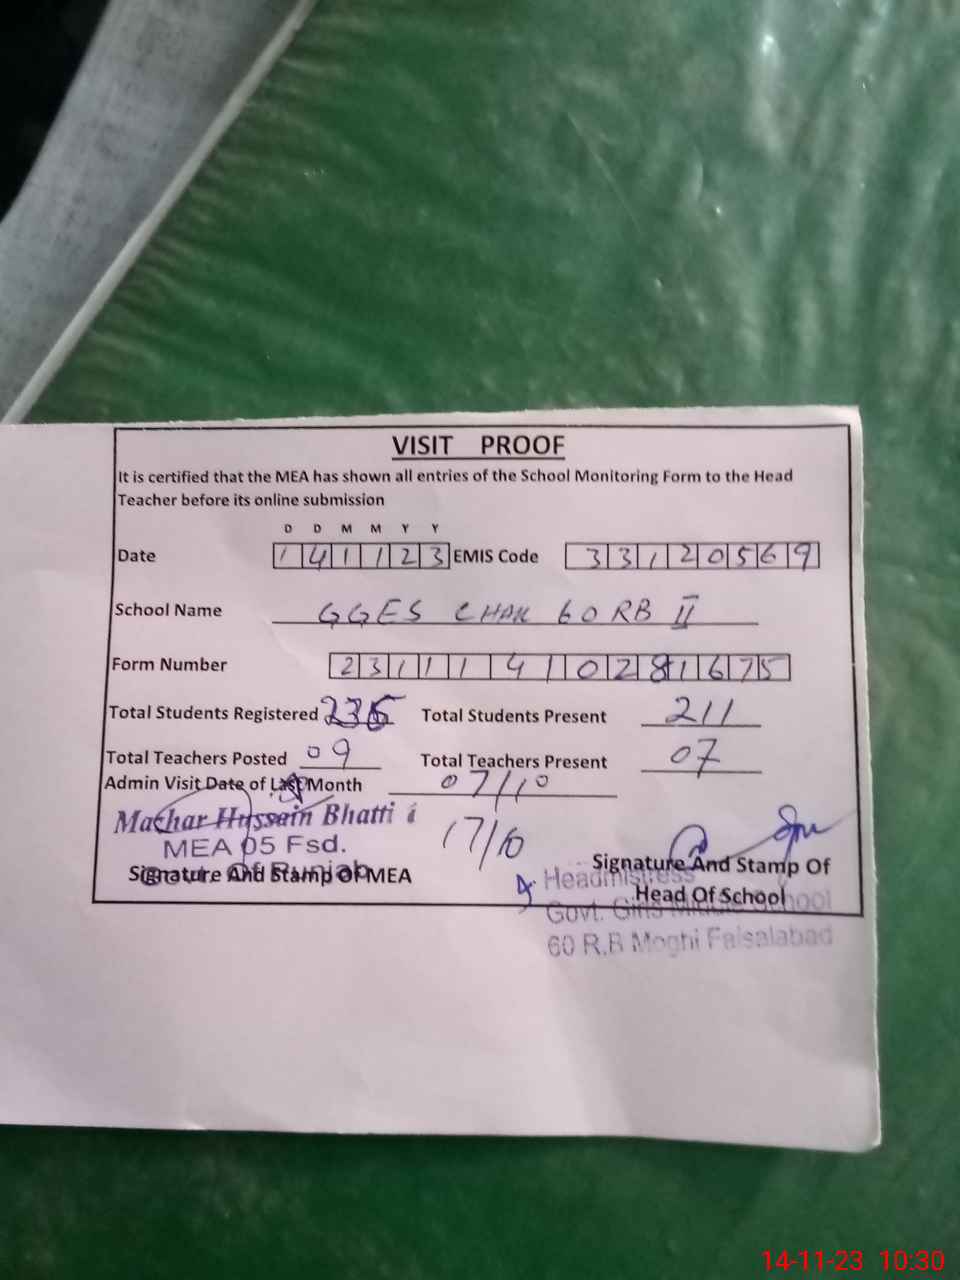 VISIT PROOF
It is certified that the MEA has shown all entries of the School Monitoring Form to the Head
Teacher before its online submission
D D M M Y Y
Date 141123 EMIS Code 33120569
School Name GGES CHAK 60 RB II
Form Number 23111410281675
Total Students Registered Total Students Present 211
Total Teachers Posted 09 Total Teachers Present 07
Admin Visit Date of Last Month 07/10
Mazhar Hussain Bhatti
17/10
MEA 05 Fsd.
Govt. Of Punjab
Signature And Stamp Of MEA
Signature And Stamp Of
Head Of School
Headmistress
Govt. Girls Middle School
60 R.B Moghi Faisalabad
14-11-23 10:30